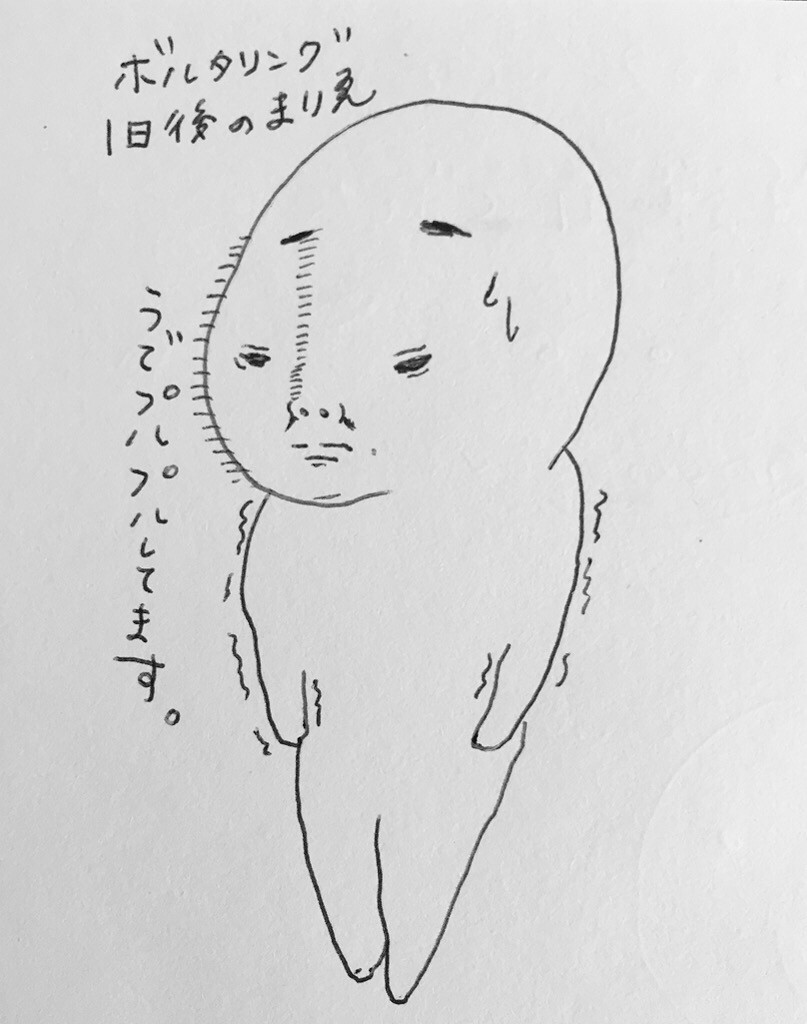 ボルタリング
1日後のまりえ
うでプルプルしてます。